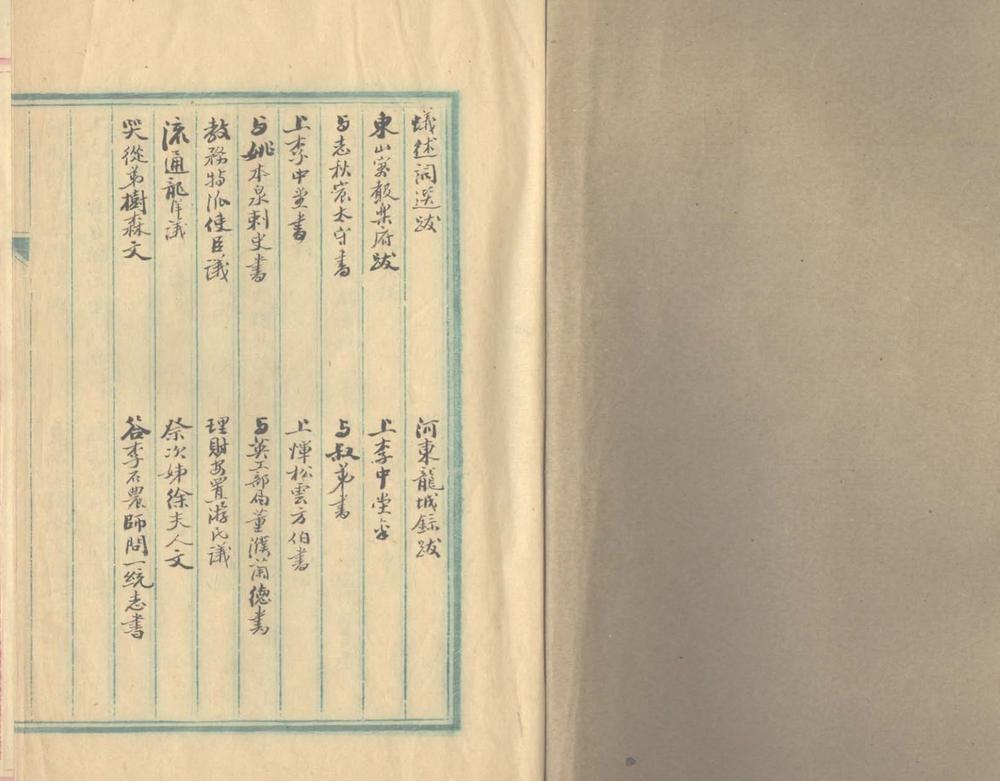 蟻述詞選跋
河東龍城錄跋
東山寓聲樂府跋
上李中堂
与志秋宸太守書
与叔弟書
上李中堂書
上惲松雲方伯書
与姚本泉刺史書
与英工部局董濮蘭德書
教務特派使臣議
理財安置游民議
流通龍洋議
祭次姊徐夫人文
哭從弟樹森文
答李石農師問一統志書